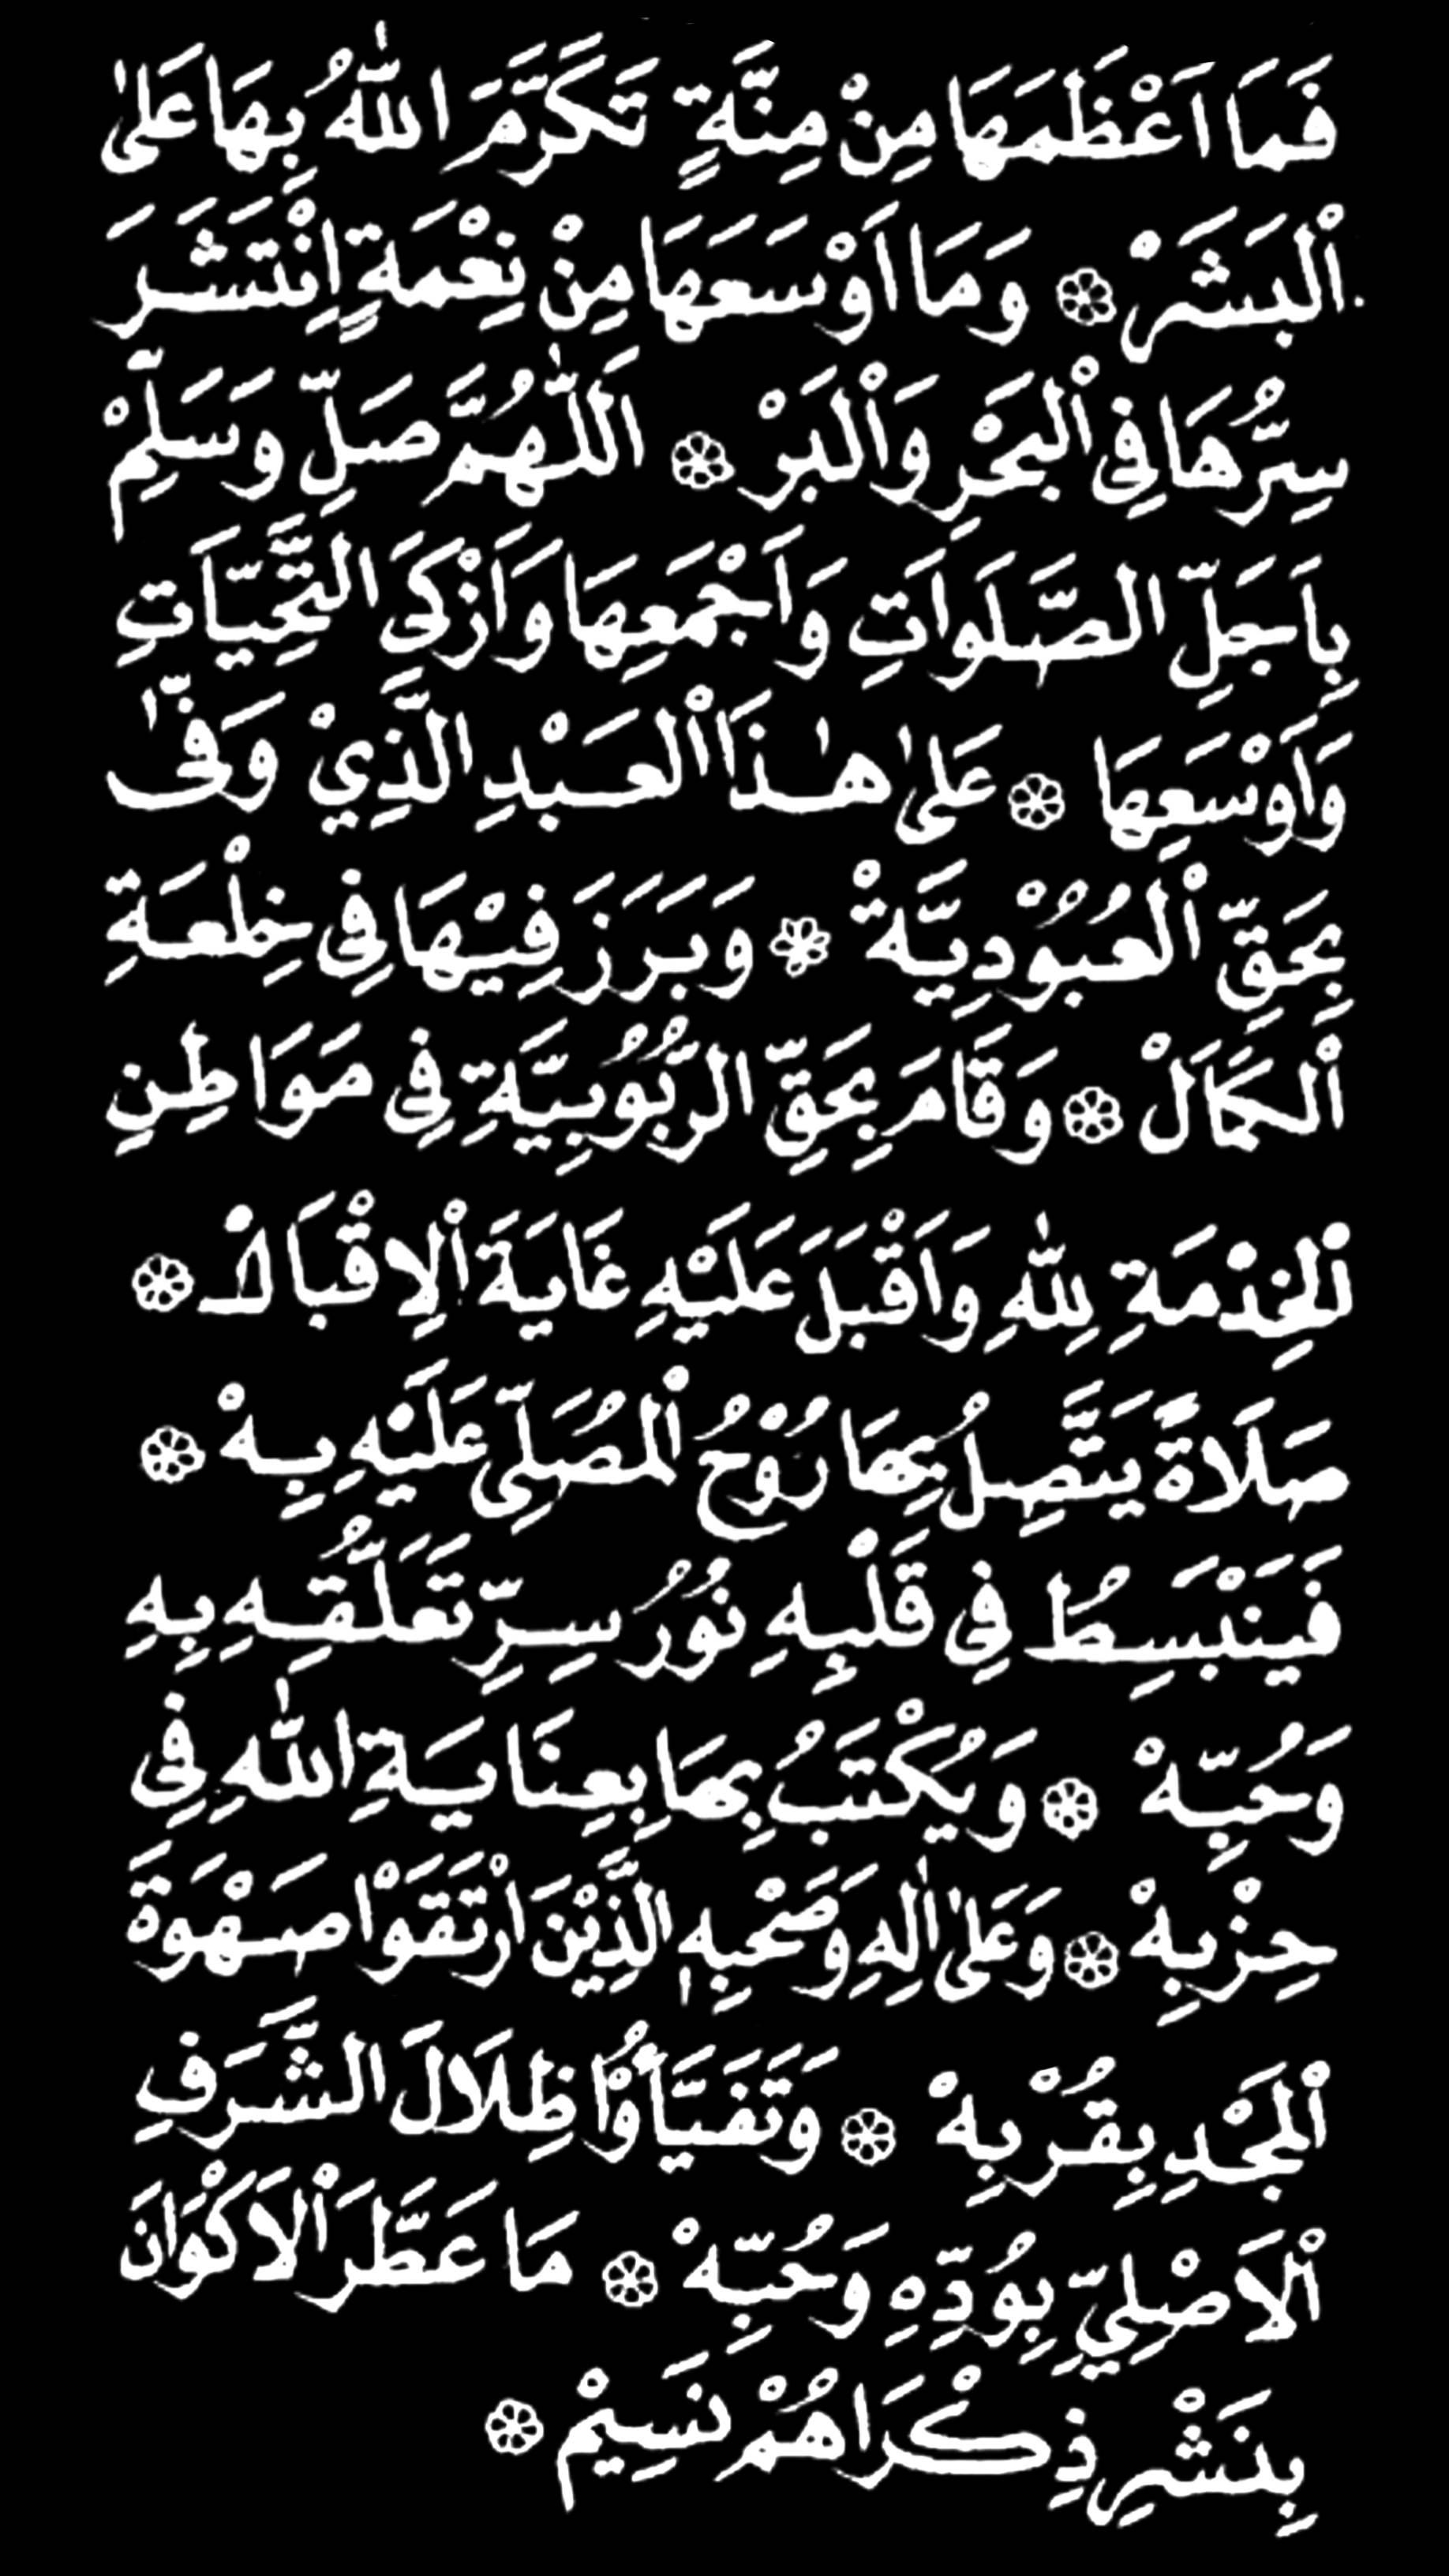 فَمَا اَعْظَمَهَا مِنْ مِنَّةٍ تَكَرَّمَ اللّٰهُ بِهَا عَلىٰ
اْلبَشَرْ ۞ وَمَا اَوْسَعَهَا مِنْ نِعْمَةٍ اِنْتَشَرَ
سِرُّهَا فِى اْلبَحْرِ وَاْلبَرْ ۞ اَللّٰهُمَّ صَلِّ وَسَلِّمْ
بِاَجَلِّ الصَّلَوَاتِ وَاَجْمَعِهَا وَاَزْكَى التَّحِيَّاتِ
وَاَوْسَعِهَا ۞ عَلىٰ هٰذَا اْلعَبْدِ الَّذِيْ وَفّٰى
بِحَقِّ اْلعُبُوْدِيَّةْ ۞ وَبَرَزَ فِيْهَا فِى خِلْعَةِ
اْلكَمَالْ ۞ وَقَامَ بِحَقِّ الرُّبُوْبِيَّةِ فِى مَوَاطِنِ
اْلخِدْمَةِ لِلّٰهِ وَاَقْبَلَ عَلَيْهِ غَايَةَ اْلاِقْبَالْ ۞
صَلَاةً يَتَّصِلُ بِهَا رُوْحُ اْلمُصَلِّى عَلَيْهِ بِهْ ۞
فَيَنْبَسِطُ فِي قَلْبِهِ نُوْرُ سِرِّ تَعَلُّقِهِ بِهِ
وَحُبِّهْ ۞ وَيُكْتَبُ بِهَا بِعِنَايَةِ اللّٰهِ فِى
حِزْبِهْ ۞ وَعَلىٰ اٰلِهِ وَصَحْبِهِ الَّذِيْنَ ارْتَقَوْا صَهْوَةَ
اْلمَجْدِ بِقُرْبِهْ ۞ وَتَفَيَّأُوْا ظِلَالَ الشَّرَفِ
اْلاَصْلِيِّ بِوُدِّهِ وَحُبِّهْ ۞ مَا عَطَّرَ اْلاَكْوَانَ
بِنَشْرِ ذِكْرَاهُمْ نَسِيْمْ ۞